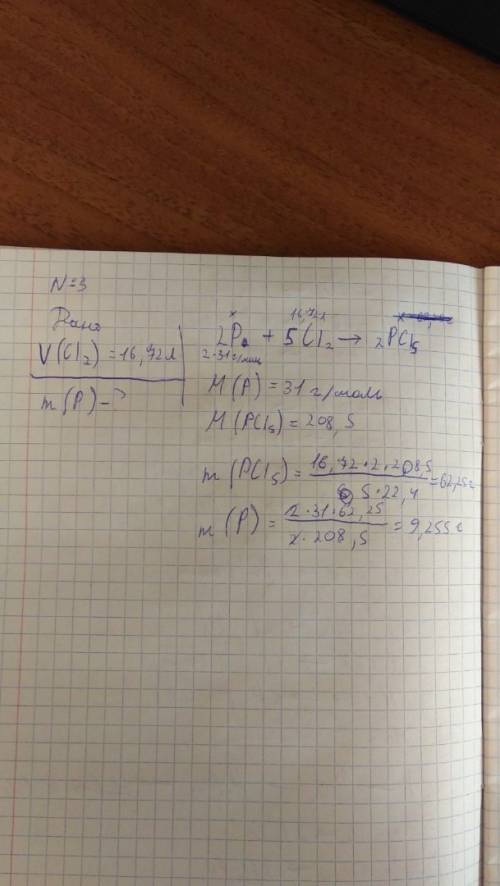 N=3
Дано
V(Cl₂) = 16,72 л
m(P) - ?
x 16,72л
2P + 5Cl₂ → 2PCl₅
2·31 г/моль
M(P) = 31 г/моль
M(PCl₅) = 208,5
m(PCl₅) = 16,72·2·208,5 / 5·22,4 = 62,25г
m(P) = 2·31·62,25 / 2·208,5 = 9,255 г